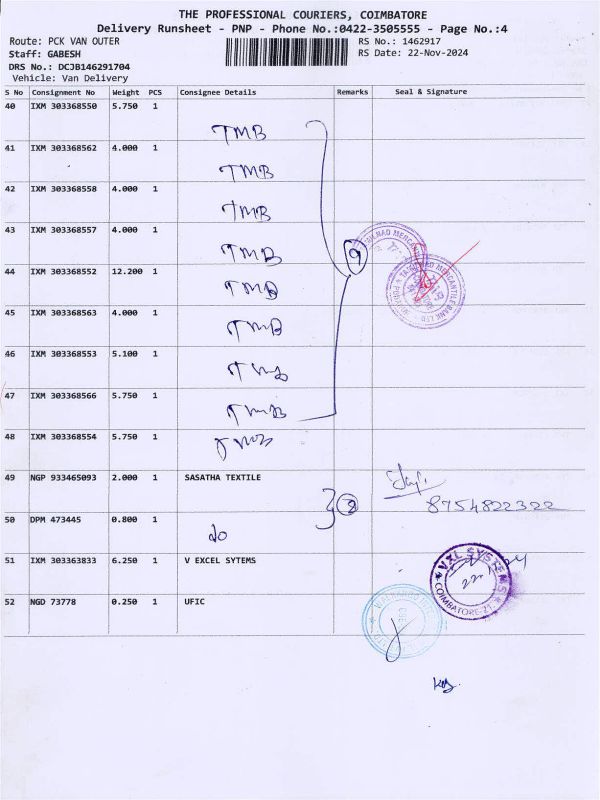 THE PROFESSIONAL COURIERS, COIMBATORE
Delivery Runsheet - PNP - Phone No.:0422-3505555 - Page No.:4
Route: PCK VAN OUTER RS No.: 1462917
Staff: GABESH RS Date: 22-Nov-2024
DRS No.: DCJB146291704
Vehicle: Van Delivery
S No Consignment No Weight PCS Consignee Details Remarks Seal & Signature
40 IXM 303368550 5.750 1
TMB
41 IXM 303368562 4.000 1
TMB
42 IXM 303368558 4.000 1
TMB
43 IXM 303368557 4.000 1
TMB
9
44 IXM 303368552 12.200 1
TMB
45 IXM 303368563 4.000 1
TMB
46 IXM 303368553 5.100 1
TMB
47 IXM 303368566 5.750 1
TMB
48 IXM 303368554 5.750 1
TMB
49 NGP 933465093 2.000 1 SASATHA TEXTILE
8754822322
50 DPM 473445 0.800 1
do
51 IXM 303363833 6.250 1 V EXCEL SYTEMS
VXL SYSTEMS
COIMBATORE-21.
52 NGD 73778 0.250 1 UFIC